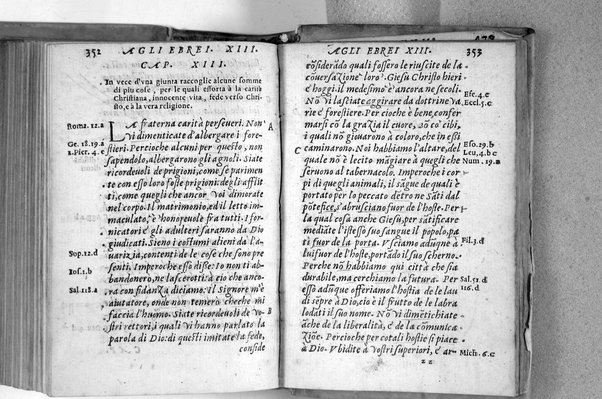 352 AGLI EBREI. XIII.
CAP. XIII.
In vece d'vna giunta raccoglie alcune somme
di piu cose, per le quali essorta à la carità
Christiana, innocente vita, fede verso Chri-
sto, e à la vera religione.
Roma. 12.a
LA fraterna carità perseueri. Non
A
vi dimenticate d'albergare i fore-
Ge. 18.19.a
stieri. Percioche alcuni per questo, non
1.Piet. 4. c
sapendolo, albergarono gli agnoli. Siate
ricordeuoli de prigioni, come se parimen-
te con esso loro foste prigioni: degli afflit
ti, come quegli che ancor voi dimorate
nel corpo. Il matrimonio, ed il letto im-
maculato, è honoreuole fra tutti. I for-
nicatori e gli adulteri saranno da Dio
giudicati. Sieno i costumi alieni da l'a
Sop.12.d
uarizia, contenti de le cose che sono pre
senti. Imperoche esso disse: Io non ti ab-
Ios.1.b
bandonerò, ne lascerotti: sì che anco-
Sal. 118.a
ra con fidanza diciamo. il Signore m'è
aiutatore, onde non temerò cheche mi
faccia l'huomo. Siate ricordeuoli de vo-
B
stri rettori, i quali vi hanno parlato la
parola di Dio: di questi imitate la fede,
conside
AGLI EBREI XIII. 353
cōsiderādo quali fossero le riuscite de la
cōuersazione loro. Giesu Christo hieri
e hoggi il medesimo è ancora ne secoli.
Nō vi lasciate aggirare da dottrine va
Efe. 4.c
rie e forestiere. Percioche è bene, confer
Eccl.5.c
marsi cō la grazia il cuore, nō cō cibi,
i quali nō giouarono à coloro, che in essi
C
caminarono. Noi habbiamo l'altare, del
Eso.29.b
quale nō è lecito māgiare à quegli che
Leu. 4.b c
Num. 19.a
seruono al tabernacolo. Imperoche i cor
pi di quegli animali, il sāgue de quali è
portato per lo peccato dētro ne Sāti dal
pōtefice, s'abrusciano fuor de l'hoste. Per
la qual cosa anche Giesu, per sātificare
mediāte l'istesso suo sangue il popolo, pa
tì fuor de la porta. Vsciamo adūque à
Fil.3.d
lui fuor de l'hoste, portādo il suo scherno.
Perche nō habbiamo quì città che sia
durabile, ma cerchiamo la futura. Per
Sal.51.d
esso adūque offeriamo l'hostia de le lau
116.d
di sēpre à Dio, cio è il frutto de le labra
lodāti il suo nome. Nō vi dimētichiate
āche de la liberalità, e de la comunica
zione. Percioche per cotali hostie si piace
à Dio. Vbidite à vostri superiori, e
Mich. 6.c
zz